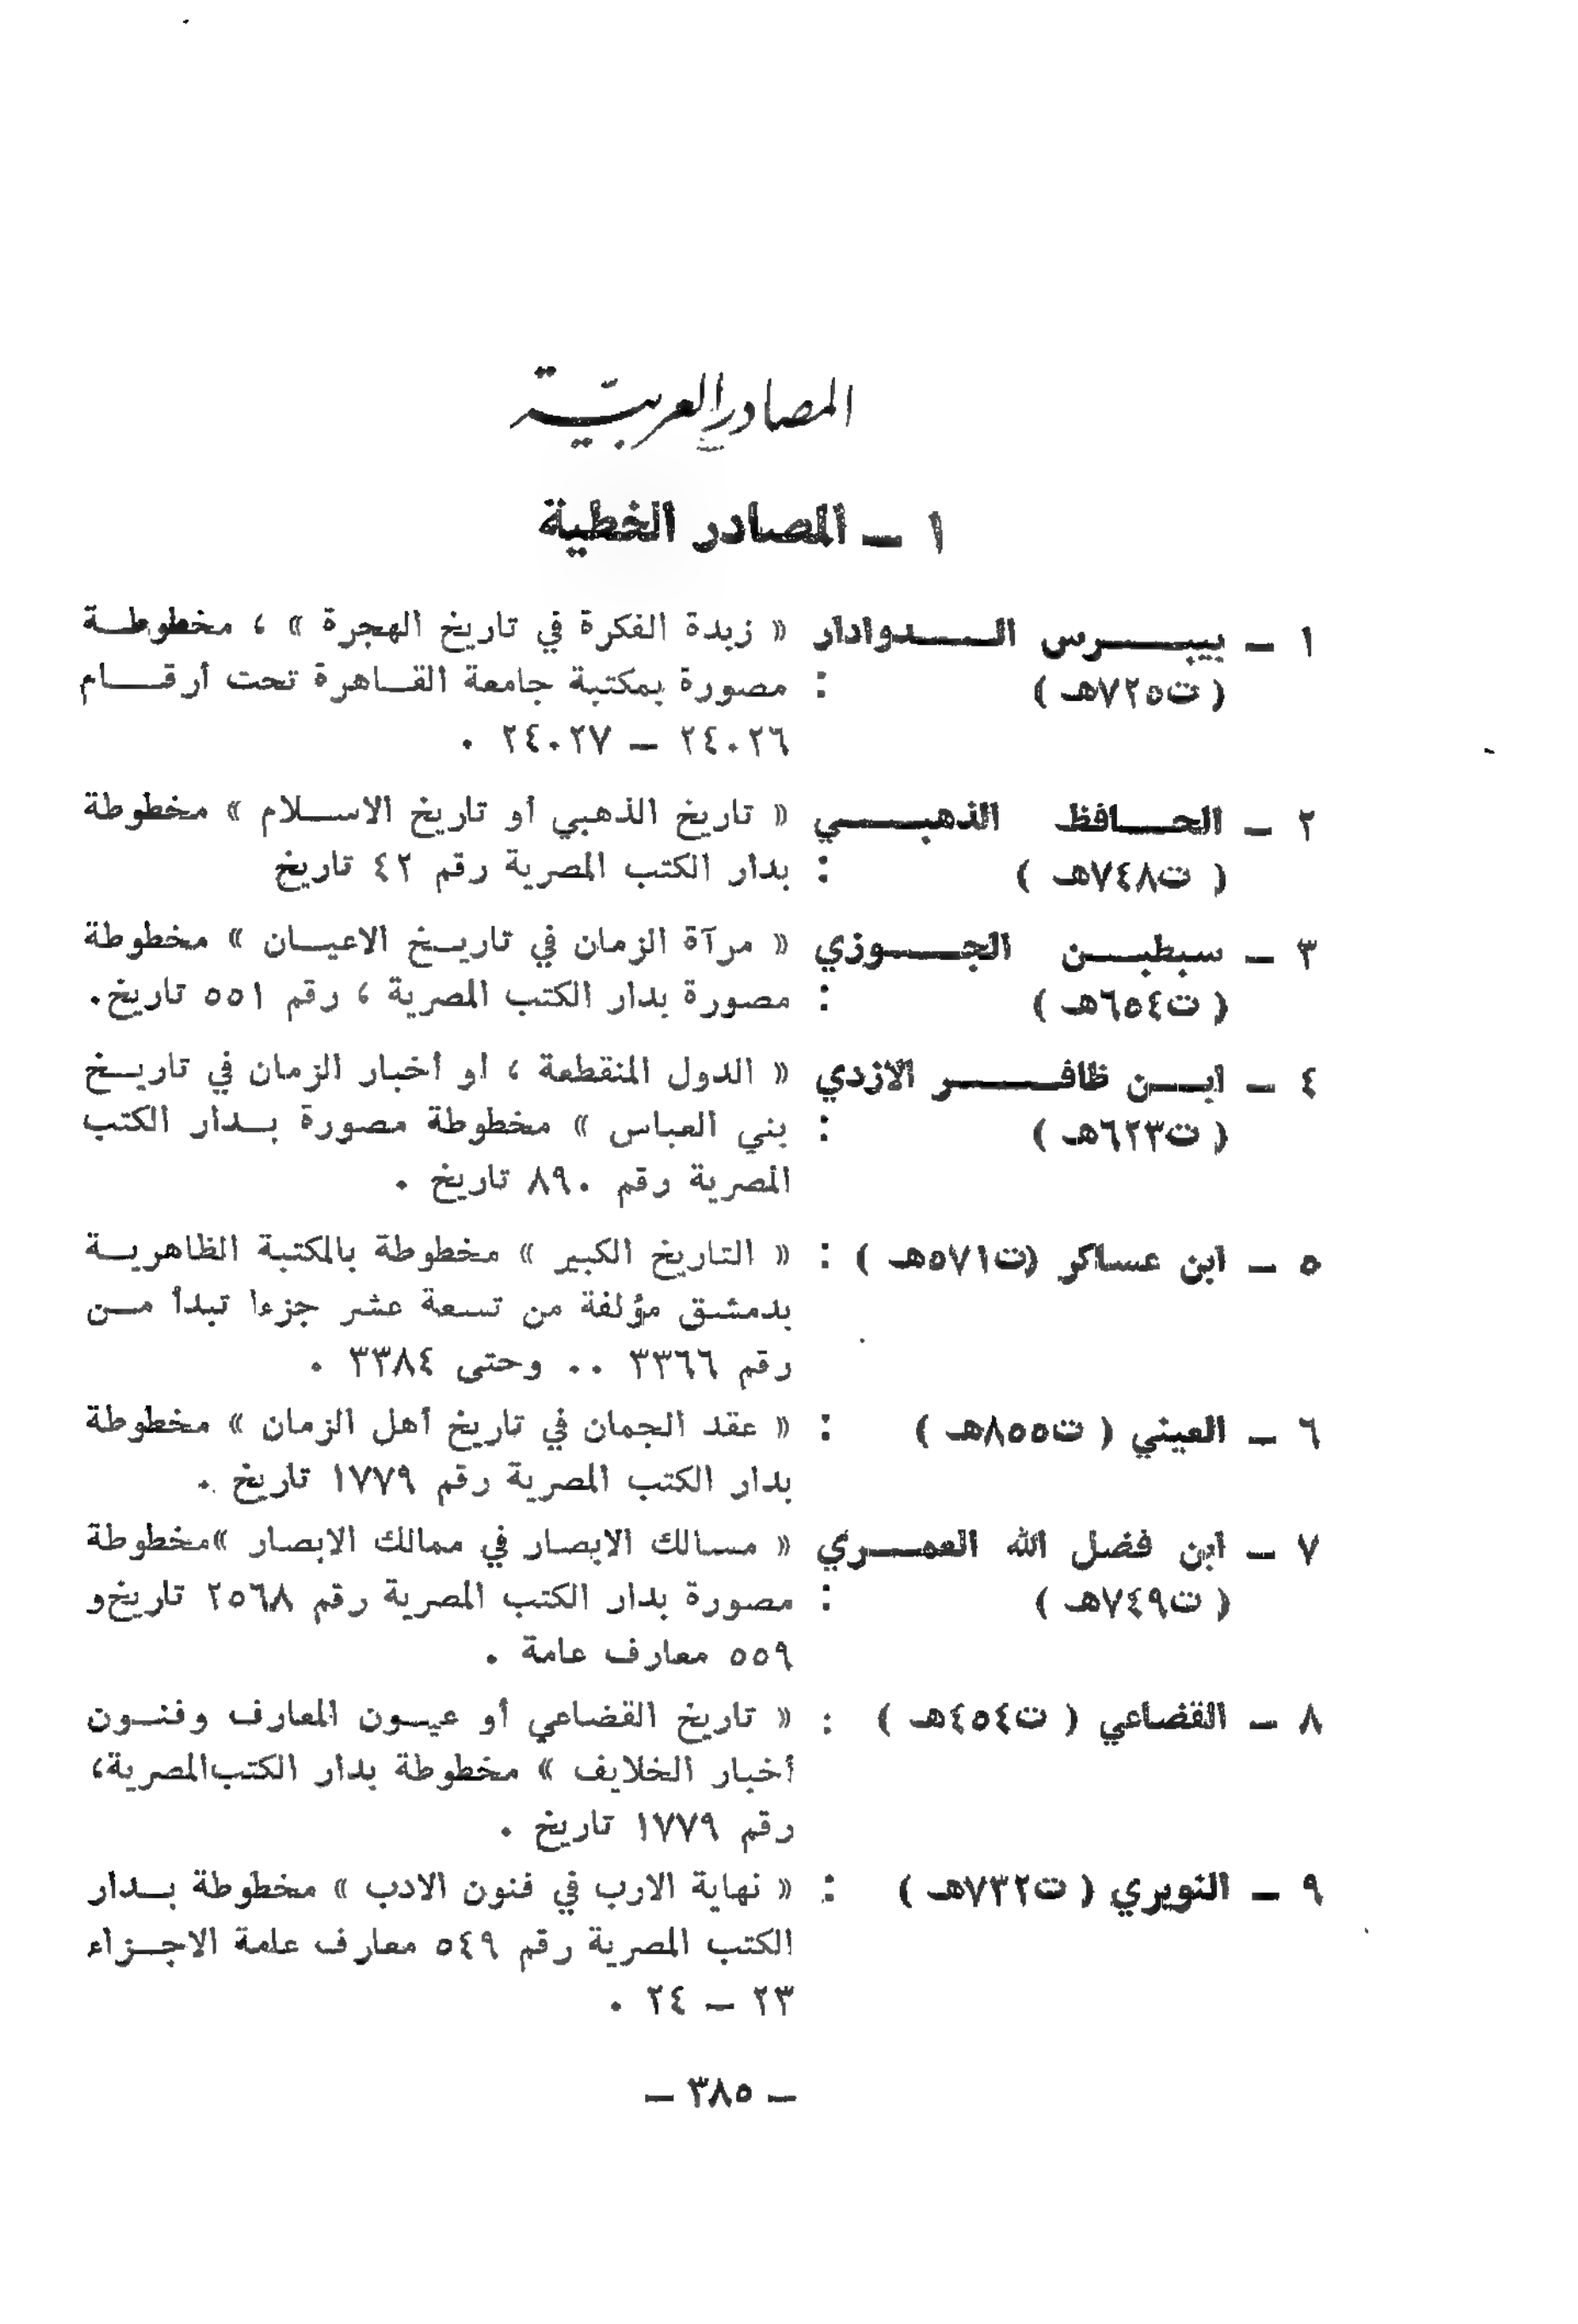 المصادر العربيّة
١ ــ المصادر الخطية
١ ــ بيبرس الدوادار « زبدة الفكرة في تاريخ الهجرة » ، مخطوطة
( ت٧٢٥هـ ) : مصورة بمكتبة جامعة القاهرة تحت أرقام
٢٤٠٢٦ ــ ٢٤٠٢٧ .
٢ ــ الحافظ الذهبي « تاريخ الذهبي أو تاريخ الاسلام » مخطوطة
( ت٧٤٨هـ ) : بدار الكتب المصرية رقم ٤٢ تاريخ
٣ ــ سبطبن الجوزي « مرآة الزمان في تاريخ الاعيان » مخطوطة
( ت٦٥٤هـ ) : مصورة بدار الكتب المصرية ، رقم ٥٥١ تاريخ.
٤ ــ ابن ظافر الازدي « الدول المنقطعة ، أو أخبار الزمان في تاريخ
( ت٦٢٣هـ ) : بني العباس » مخطوطة مصورة بدار الكتب
المصرية رقم ٨٩٠ تاريخ .
٥ ــ ابن عساكر (ت٥٧١هـ ) : « التاريخ الكبير » مخطوطة بالمكتبة الظاهرية
بدمشق مؤلفة من تسعة عشر جزءا تبدأ من
رقم ٣٣٦٦ .. وحتى ٣٣٨٤ .
٦ ــ العيني ( ت٨٥٥هـ ) : « عقد الجمان في تاريخ أهل الزمان » مخطوطة
بدار الكتب المصرية رقم ١٧٧٩ تاريخ .
٧ ــ ابن فضل الله العمري « مسالك الابصار في ممالك الابصار »مخطوطة
( ت٧٤٩هـ ) : مصورة بدار الكتب المصرية رقم ٢٥٦٨ تاريخ و
٥٥٩ معارف عامة .
٨ ــ القضاعي ( ت٤٥٤هـ ) : « تاريخ القضاعي أو عيون المعارف وفنون
أخبار الخلايف » مخطوطة بدار الكتب المصرية،
رقم ١٧٧٩ تاريخ .
٩ ــ النويري ( ت٧٣٢هـ ) : « نهاية الارب في فنون الادب » مخطوطة بدار
الكتب المصرية رقم ٥٤٩ معارف عامة الاجزاء
٢٣ ــ ٢٤ .
ــ ٣٨٥ ــ